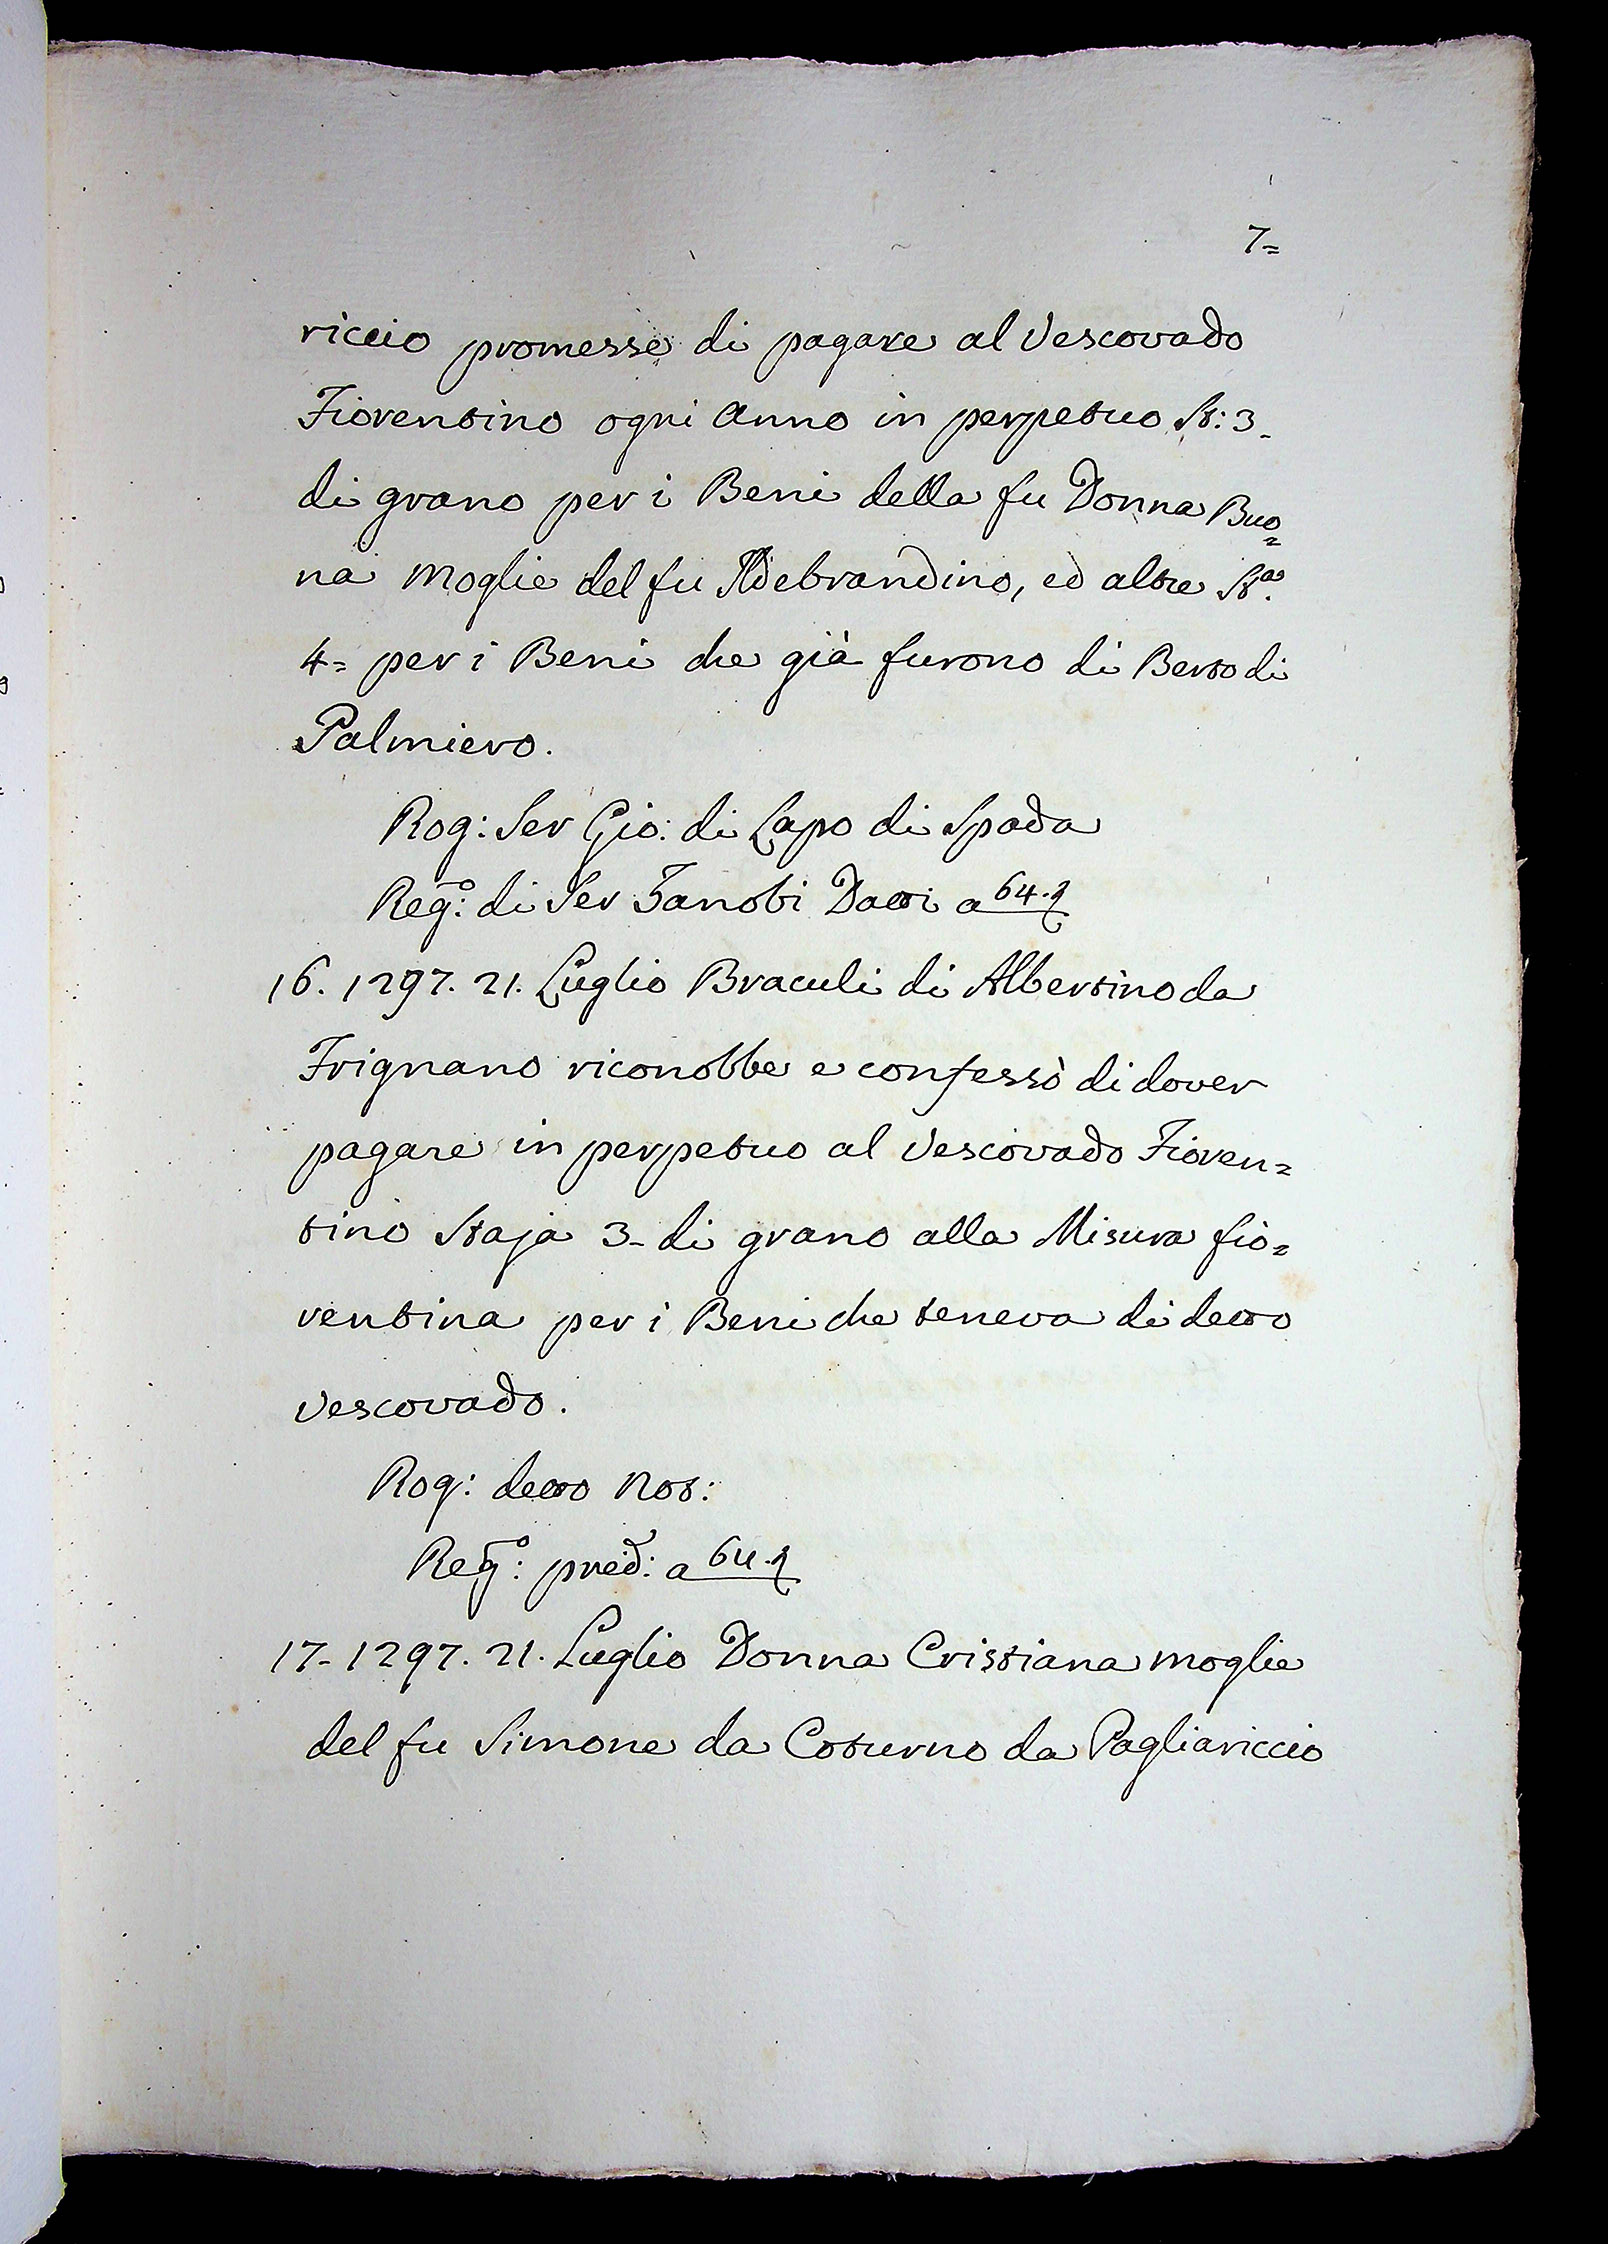 7=
riccio promesse di pagare al Vescovado
Fiorentino ogni anno in perpetuo St: 3_
di grano per i Beni della fu Donna Buo=
na moglie del fu Ildebrandino, ed altre Sta.
4= per i Beni che già furono di Berto di
Palmiero.
Rog: Ser Gio: di Lapo di Spada
Rego: di Ser Zanobi Datti a 64.
16. 1297. 21. Luglio Braculi di Albertino da
Frignano riconobbe e confessò di dover
pagare in perpetuo al Vescovado Fioren=
tino Staja 3_ di grano alla Misura fio=
rentina per i Beni che teneva di detto
Vescovado.
Rog: detto Not:
Rego: pred: a 64.
17_ 1297. 21. Luglio Donna Cristiana moglie
del fu Simone da Coturno da Pagliariccio